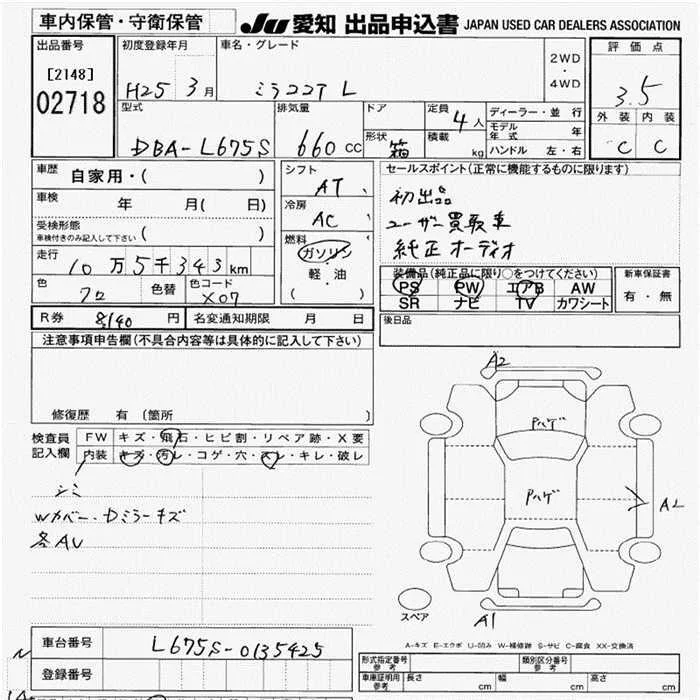 車内保管・守衛保管
JU 愛知 出品申込書 JAPAN USED CAR DEALERS ASSOCIATION
出品番号
[2148]
02718
初度登録年月
H25 3月
車名・グレード
ミラココア L
2WD
・
4WD
評価点
3.5
外装 内装
C C
型式
DBA-L675S
排気量
660 CC
ドア
形状
箱
定員
4人
積載
kg
ディーラー・並行
モデル年式 年
ハンドル 左・右
車歴
自家用・( )
車検
年 月( 日)
受検形態
車検付きのみ記入して下さい ( )
走行
10万5千343km
色
色替
色コード
X07
シフト
AT
冷房
AC
燃料
ガソリン
軽・油
( )
セールスポイント(正常に機能するものに限ります)
初出品
ユーザー買取車
純正オーディオ
装備品(純正品に限り○をつけてください)
PS PW エアB AW
SR ナビ TV カワシート
新車保証書
有・無
後日品
R券 8,140 円 名変通知期限 月 日
注意事項申告欄(不具合内容等は具体的に記入して下さい)
修復歴 有(箇所 )
検査員記入欄
FW キズ・飛石・ヒビ割・リペア跡・X要
内装 キズ・汚レ・コゲ・穴・スレ・キレ・破レ
シミ
Wカバー・Dミラーキズ
各AU
A2
Pハゲ
Pハゲ
A2
スペア
A1
A-キズ E-エクボ U-凹み W-補修跡 S-サビ C-腐食 XX-交換済
車台番号
L675S-0135425
登録番号
形式指定番号
参考
類別区分番号
参考
車庫証明用
参考
長さ cm 幅 cm 高さ cm